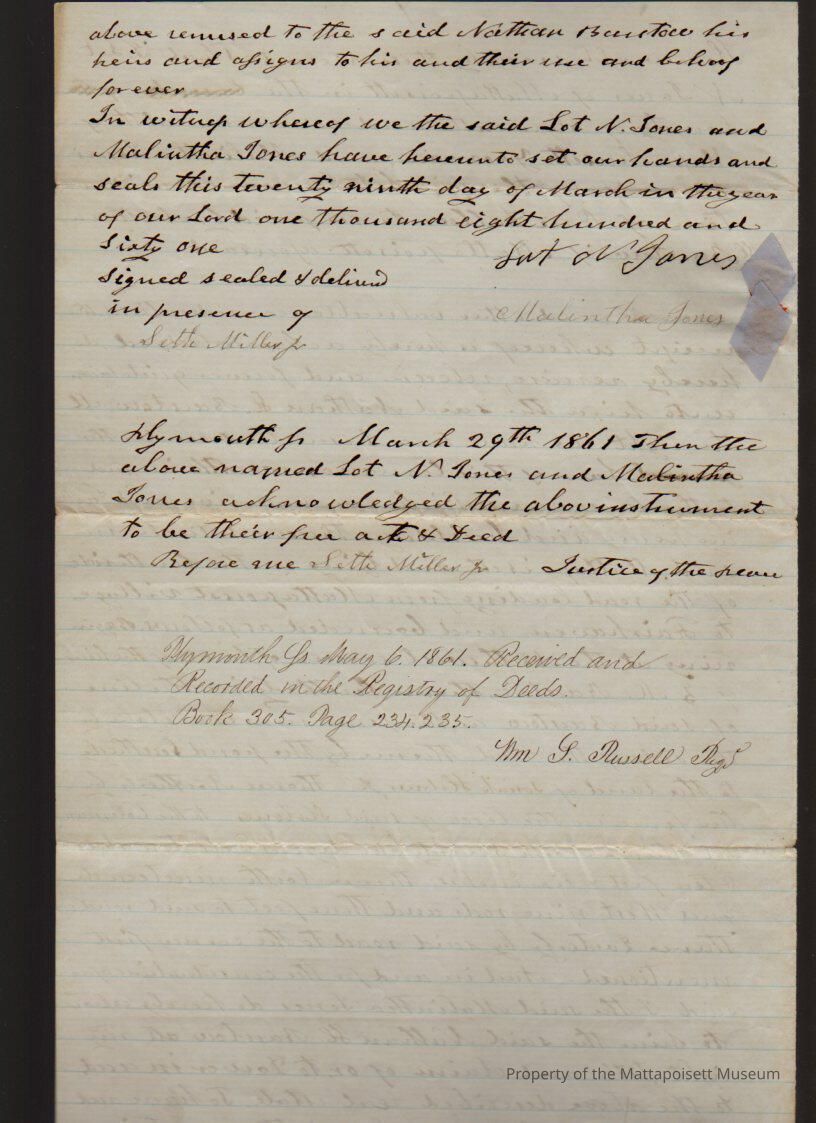 above remised to the said Nathan Barstow his
heirs and assigns to his and their use and behoof
forever
In witness whereof we the said Lot N. Jones and
Malintha Jones have hereunto set our hands and
seals this twenty ninth day of March in the year
of our Lord one thousand eight hundred and
sixty one
Lot N Jones
signed sealed & deliverd
in presence of
Malintha Jones
Seth Miller Jr
Plymouth ss March 29th 1861 Then the
above named Lot N. Jones and Malintha
Jones acknowledged the abov instrument
to be their free act & Deed
Before me Seth Miller Jr Justice of the peace
Plymouth Ss May 6. 1861. Received and
Recorded in the Registry of Deeds.
Book 305. Page 234.235.
Wm S. Russell Regr
Property of the Mattapoisett Museum